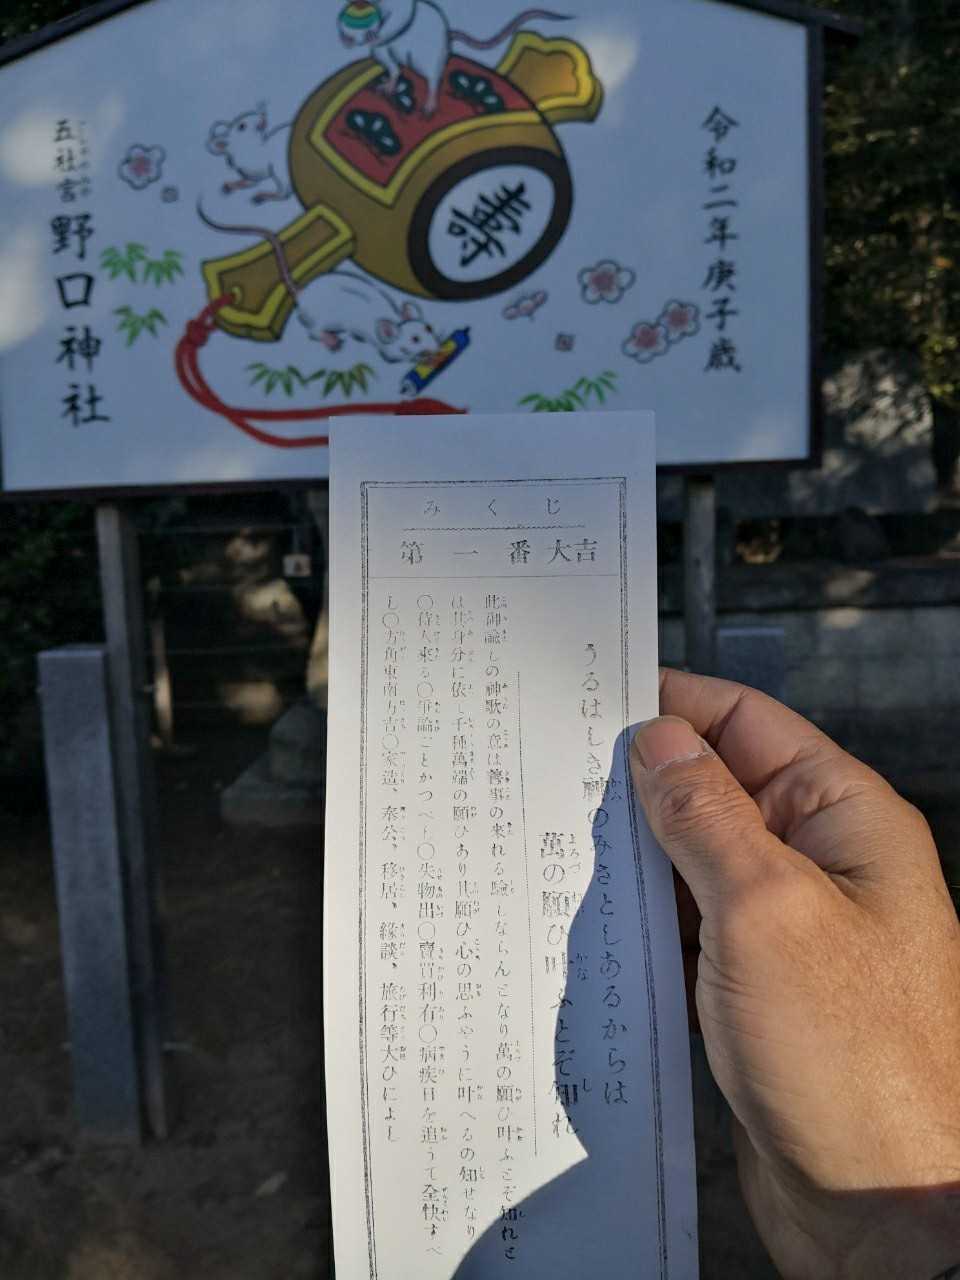 令和二年庚子歳
寿
五社宮
野口神社
みくじ
第一番大吉
うるはしき神のみさとしあるからは
萬の願ひ叶ふとぞ知れ
此御諭しの神歌の意は善事の来れる験しならんとなり萬の願ひ叶ふとぞ知れと
は其身分に依し千種萬端の願ひあり其願ひ心の思ふやうに叶へるの知せなり
〇待人来る〇争論ごとかつべし〇失物出〇賣買利有〇病疾日を追うて全快すべ
し〇方角東南方吉〇家造、奉公、移居、縁談、旅行等大ひによし